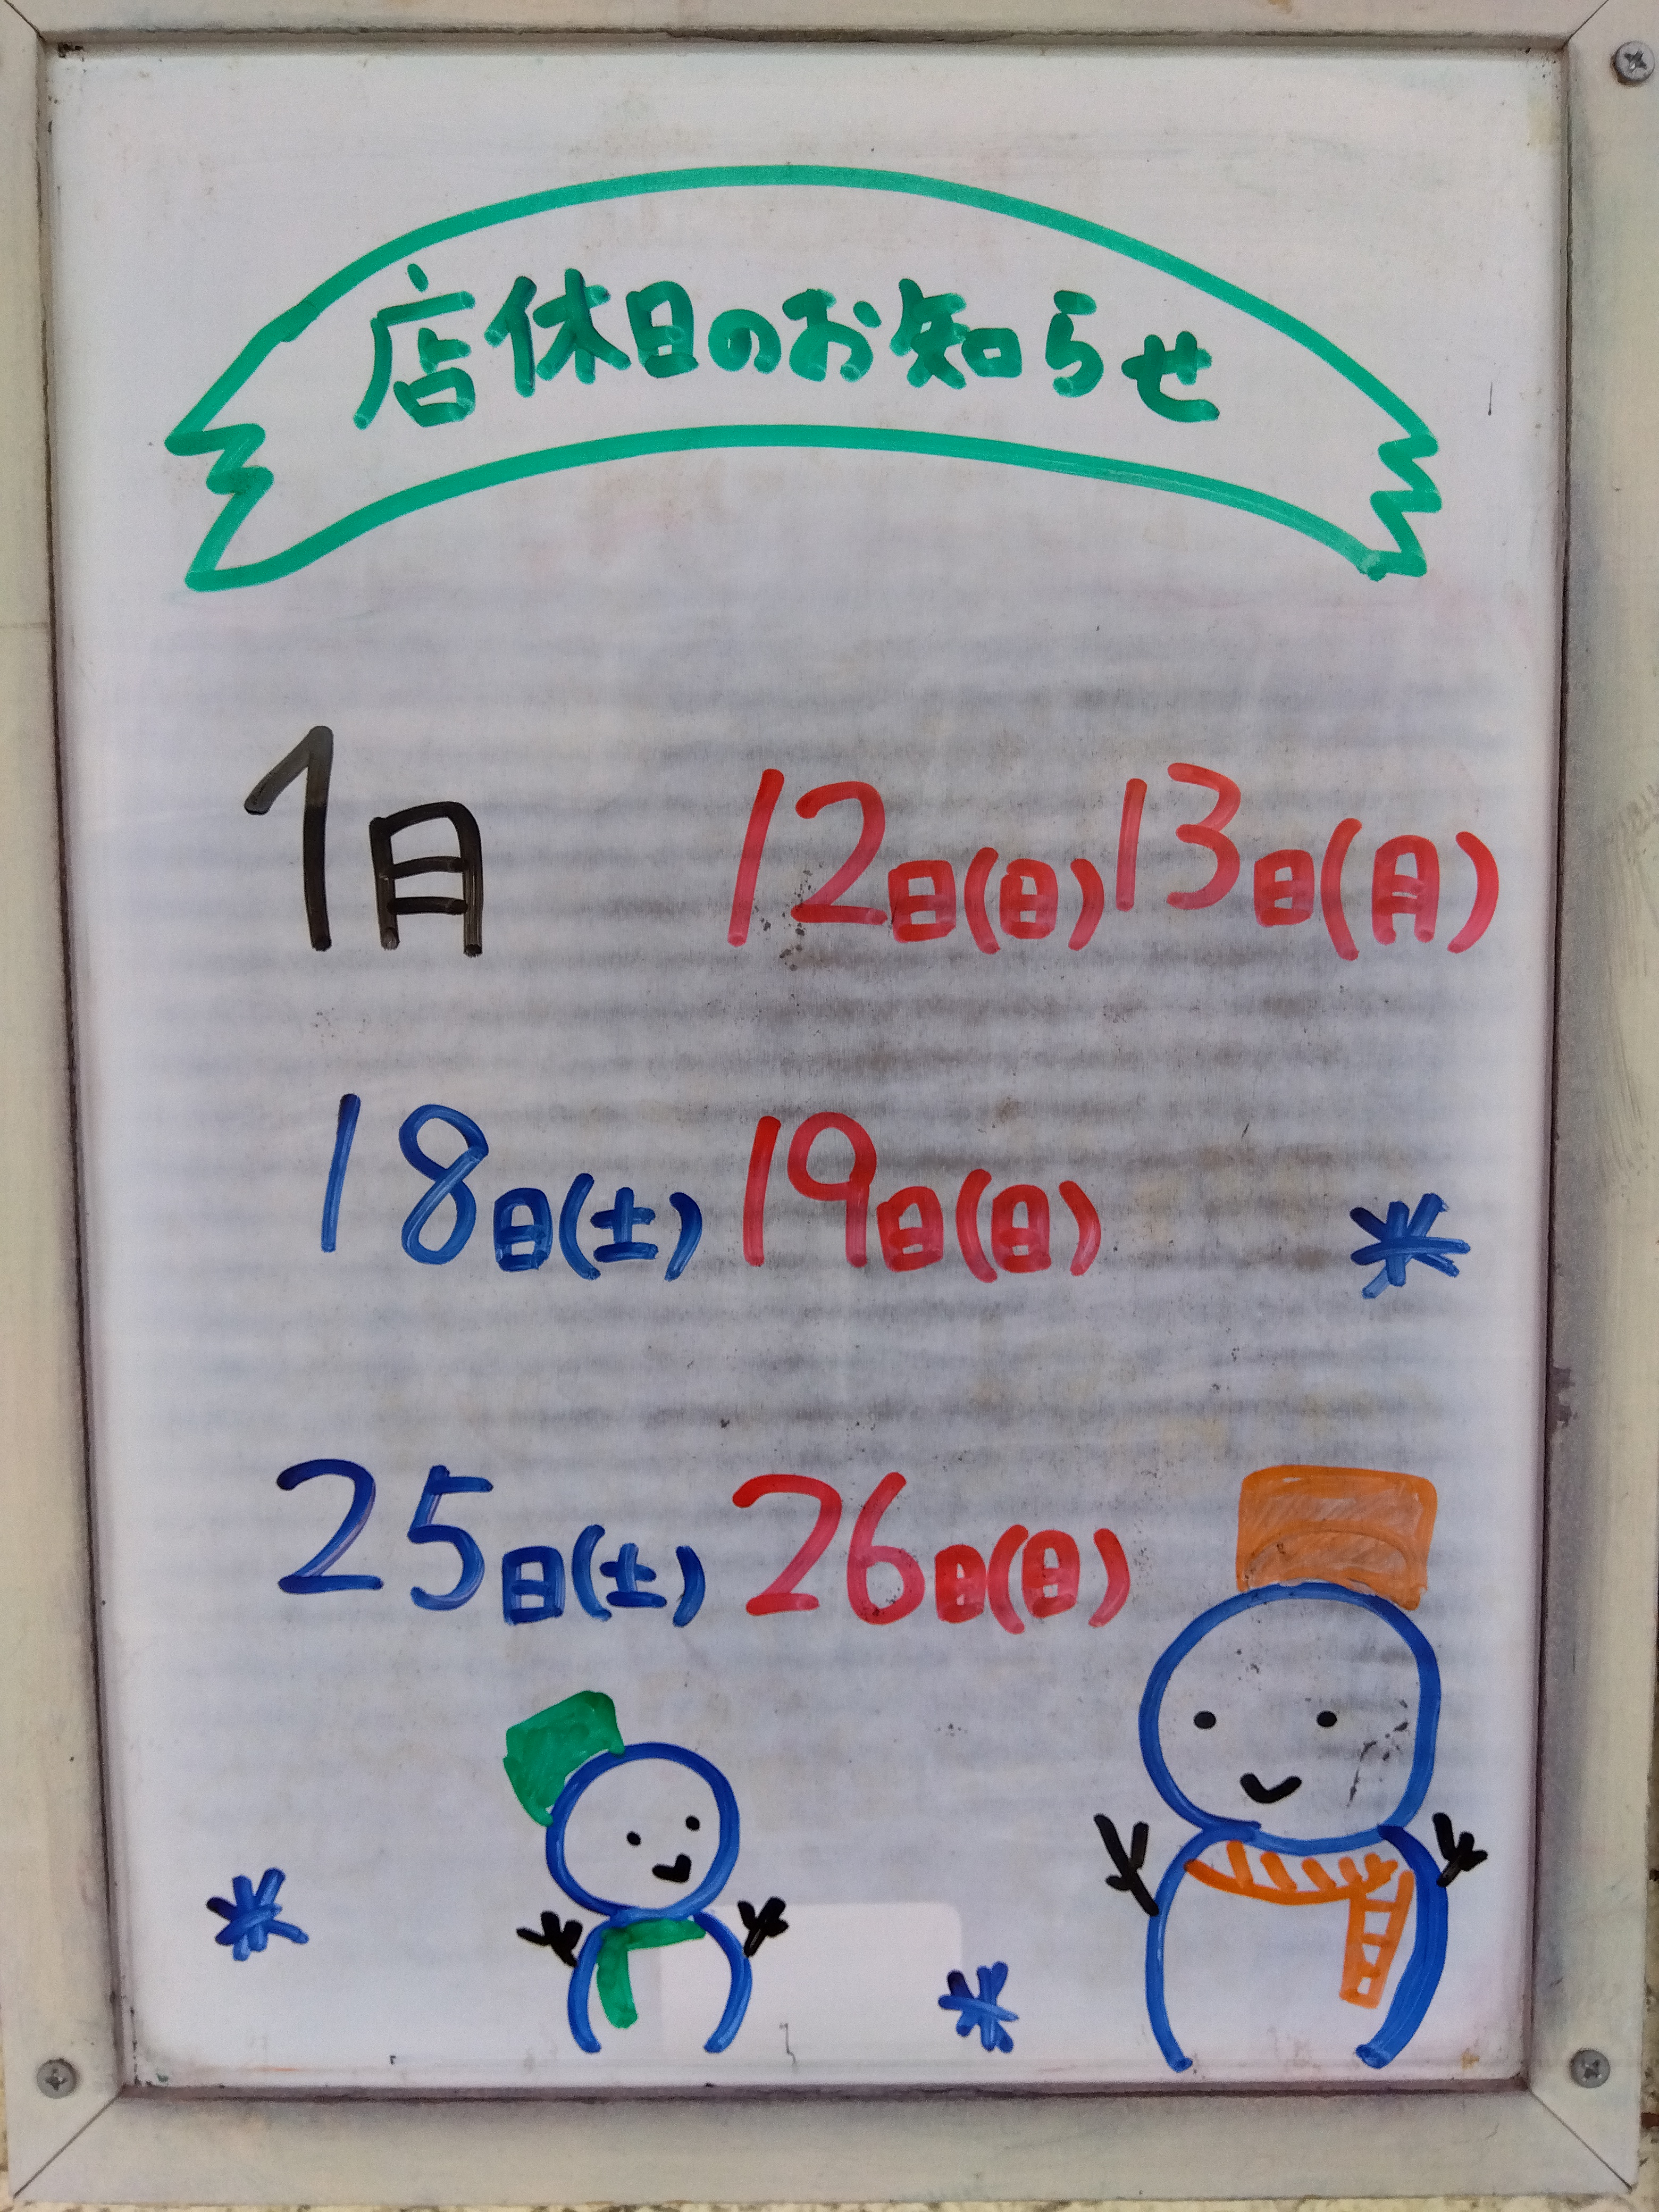 店休日のお知らせ
1月 12日(日)13日(月)
18日(土)19日(日)
25日(土)26日(日)